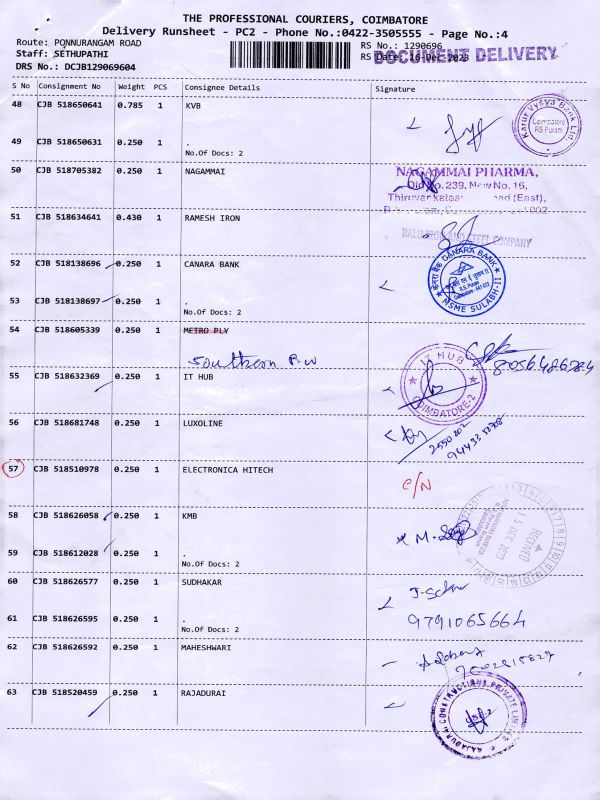 THE PROFESSIONAL COURIERS, COIMBATORE
Delivery Runsheet - PC2 - Phone No.:0422-3505555 - Page No.:4
Route: PONNURANGAM ROAD
Staff: SETHUPATHI
DRS No.: DCJB129069604
RS No.: 1290696
RS Date: 16-Dec-2023
DOCUMENT DELIVERY
S No Consignment No Weight PCS Consignee Details Signature
48 CJB 518650641 0.785 1 KVB
Karur Vysya Bank Ltd
Coimbatore
RS Puram
49 CJB 518650631 0.250 1 .
No.Of Docs: 2
50 CJB 518705382 0.250 1 NAGAMMAI
NAGAMMAI PHARMA,
Old No. 239, New No. 16,
51 CJB 518634641 0.430 1 RAMESH IRON
STEEL COMPANY
52 CJB 518138696 0.250 1 CANARA BANK
CANARA BANK
R.S. Puram
MSME SULABH-II
53 CJB 518138697 0.250 1 .
No.Of Docs: 2
54 CJB 518605339 0.250 1 METRO PLY
Southern
8056486784
55 CJB 518632369 0.250 1 IT HUB
IT HUB
COIMBATORE-2
56 CJB 518681748 0.250 1 LUXOLINE
57 CJB 518510978 0.250 1 ELECTRONICA HITECH
C/N
58 CJB 518626058 0.250 1 KMB
15 DEC 2023
RECEIVED
59 CJB 518612028 0.250 1 .
No.Of Docs: 2
60 CJB 518626577 0.250 1 SUDHAKAR
61 CJB 518626595 0.250 1 .
No.Of Docs: 2
9791065664
62 CJB 518626592 0.250 1 MAHESHWARI
63 CJB 518520459 0.250 1 RAJADURAI
RAJADURAI CONSTRUCTIONS PRIVATE LIMITED